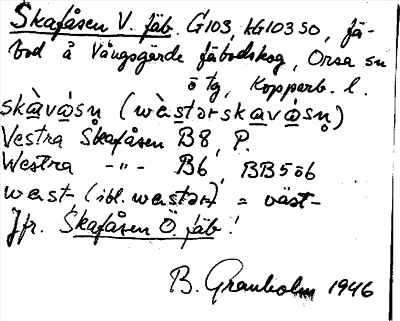 Skafåsen V. fäb. G103, kG103 SO, fä-
bod å Vångsgärde fäbodskog, Orsa sn
ö tg, Kopparb. l.
skàvå̀sṇ (wæ̀stərskavå̀sṇ)
Vestra Skafåsen B8, P.
Westra -"- B6, BB5öb
wæst- (ibl. wæstər) = väst-
Jfr. Skafåsen Ö. fäb!
B. Granholm 1946